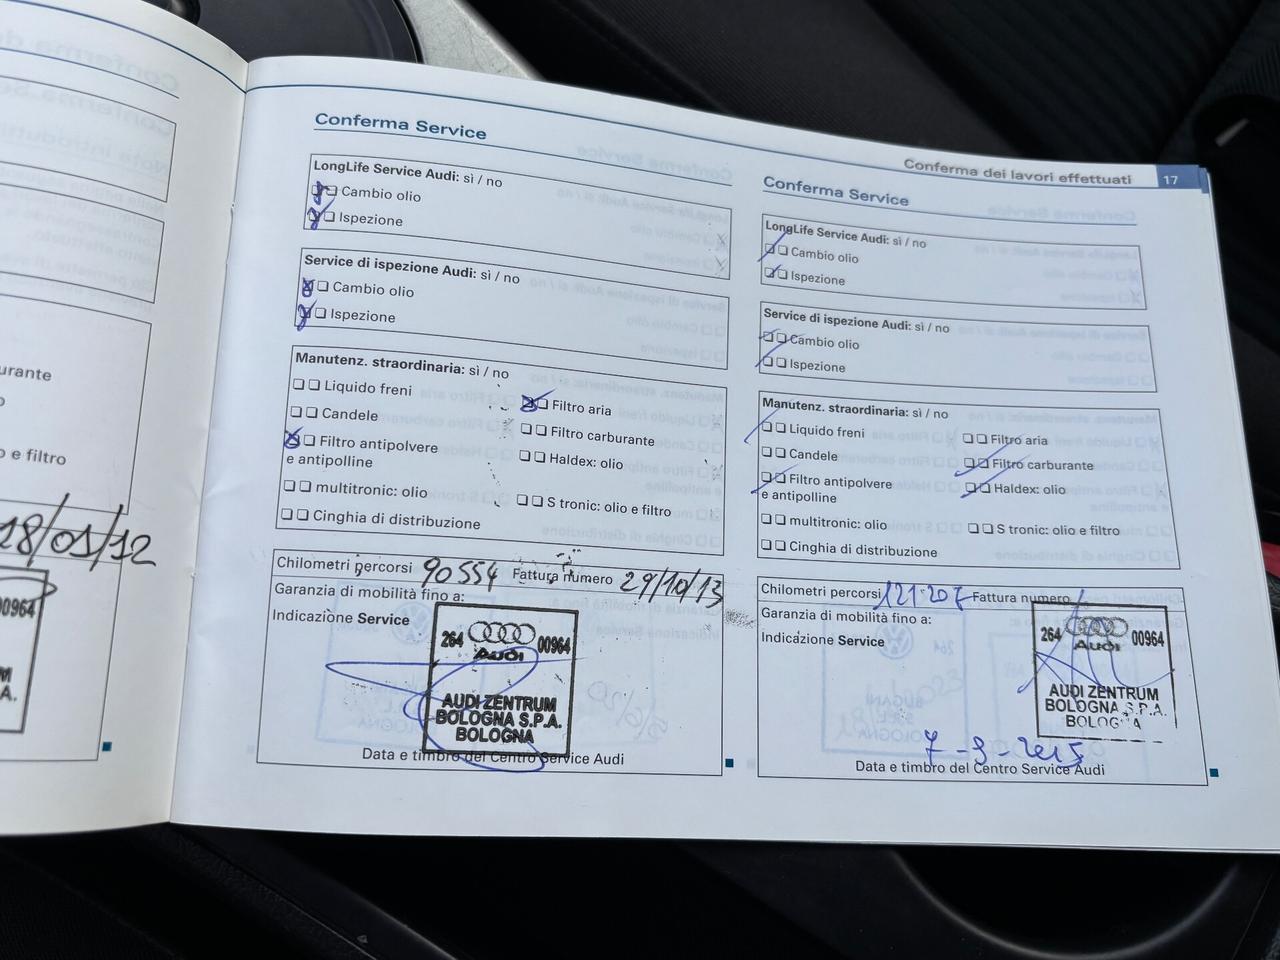 urante
o e filtro
18/01/12
00964
M
A.
Conferma Service
LongLife Service Audi: sì / no
Cambio olio
Ispezione
Service di ispezione Audi: sì / no
Cambio olio
Ispezione
Manutenz. straordinaria: sì / no
Liquido freni
Candele
Filtro antipolvere
e antipolline
multitronic: olio
Cinghia di distribuzione
Filtro aria
Filtro carburante
Haldex: olio
S tronic: olio e filtro
Chilometri percorsi 90554 Fattura numero 29/10/13
Garanzia di mobilità fino a:
Indicazione Service
264 00964
Audi
AUDI ZENTRUM
BOLOGNA S.P.A.
BOLOGNA
Data e timbro del Centro Service Audi
Conferma dei lavori effettuati 17
Conferma Service
LongLife Service Audi: sì / no
Cambio olio
Ispezione
Service di ispezione Audi: sì / no
Cambio olio
Ispezione
Manutenz. straordinaria: sì / no
Liquido freni
Candele
Filtro antipolvere
e antipolline
multitronic: olio
Cinghia di distribuzione
Filtro aria
Filtro carburante
Haldex: olio
S tronic: olio e filtro
Chilometri percorsi 121.207 Fattura numero
Garanzia di mobilità fino a:
Indicazione Service
264 00964
Audi
AUDI ZENTRUM
BOLOGNA S.P.A.
BOLOGNA
7-9-2015
Data e timbro del Centro Service Audi